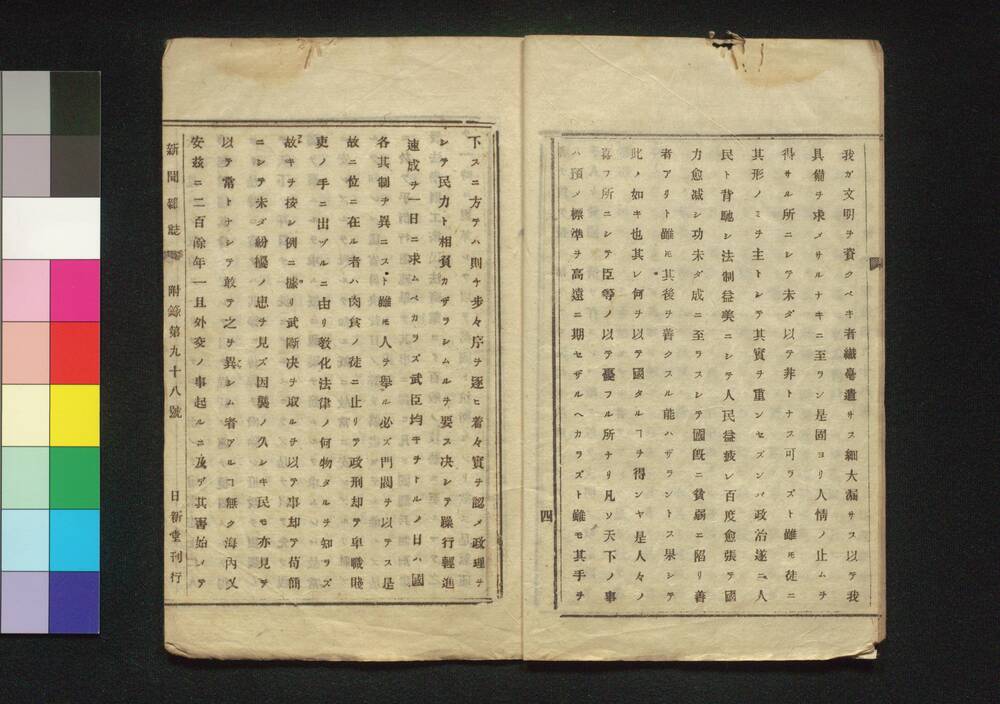 我ガ文明ヲ資クベキ者纎毫遺サス細大漏サス以テ我
具備ヲ求メサルナキニ至ラン是固ヨリ人情ノ止ムヲ
得サル所ニシテ未ダ以テ非トナス可ラズト雖モ徒ニ
其形ノミヲ主トシテ其實ヲ重ンセズンバ政治遂ニ人
民ト背馳シ法制益美ニシテ人民益疲レ百度愈張テ國
力愈减シ功未ダ成ニ至ラスシテ國旣ニ貧弱ニ陷リ善
者アリト雖モ其後ヲ善クスル能ハザラントス果シテ
此ノ如キ也其レ何ヲ以テ國タルヿヲ得ンヤ是人々ノ
喜フ所ニシテ臣等ノ以テ憂フル所ナリ凡ソ天下ノ事
ハ預メ標準ヲ高遠ニ期セザルヘカラズト雖モ其手ヲ
四
下スニ方テハ則ケ歩々序ヲ逐ヒ着々實ヲ認メ政理ヲ
シテ民力ト相負カザラシムルヲ要ス决シテ躁行輕進
速成ヲ一日ニ求ムベカラズ武臣均キヲトルノ日ハ國
各其制ヲ異ニスト雖モ人ヲ擧ル必ズ門閥ヲ以テス是
故ニ位ニ在ル者ハ肉食ノ徒ニ止リテ政刑却テ卑職賤
吏ノ手ニ出ヅルニ由リ敎化法律ノ何物タルヲ知ラズ
故キヲ按シ例ニ據リ武斷决ヲ取ルヲ以テ事却テ苟簡
ニシテ未ダ紛擾ノ患ヲ見ズ因襲ノ久シキ民モ亦見テ
以テ常トナシテ敢テ之ヲ異シム者アルヿ無ク海內乂
安茲ニ二百餘年一旦外交ノ事起ルニ及デ其害始シテ
新聞雜誌 附錄第九十八號 日新堂刊行